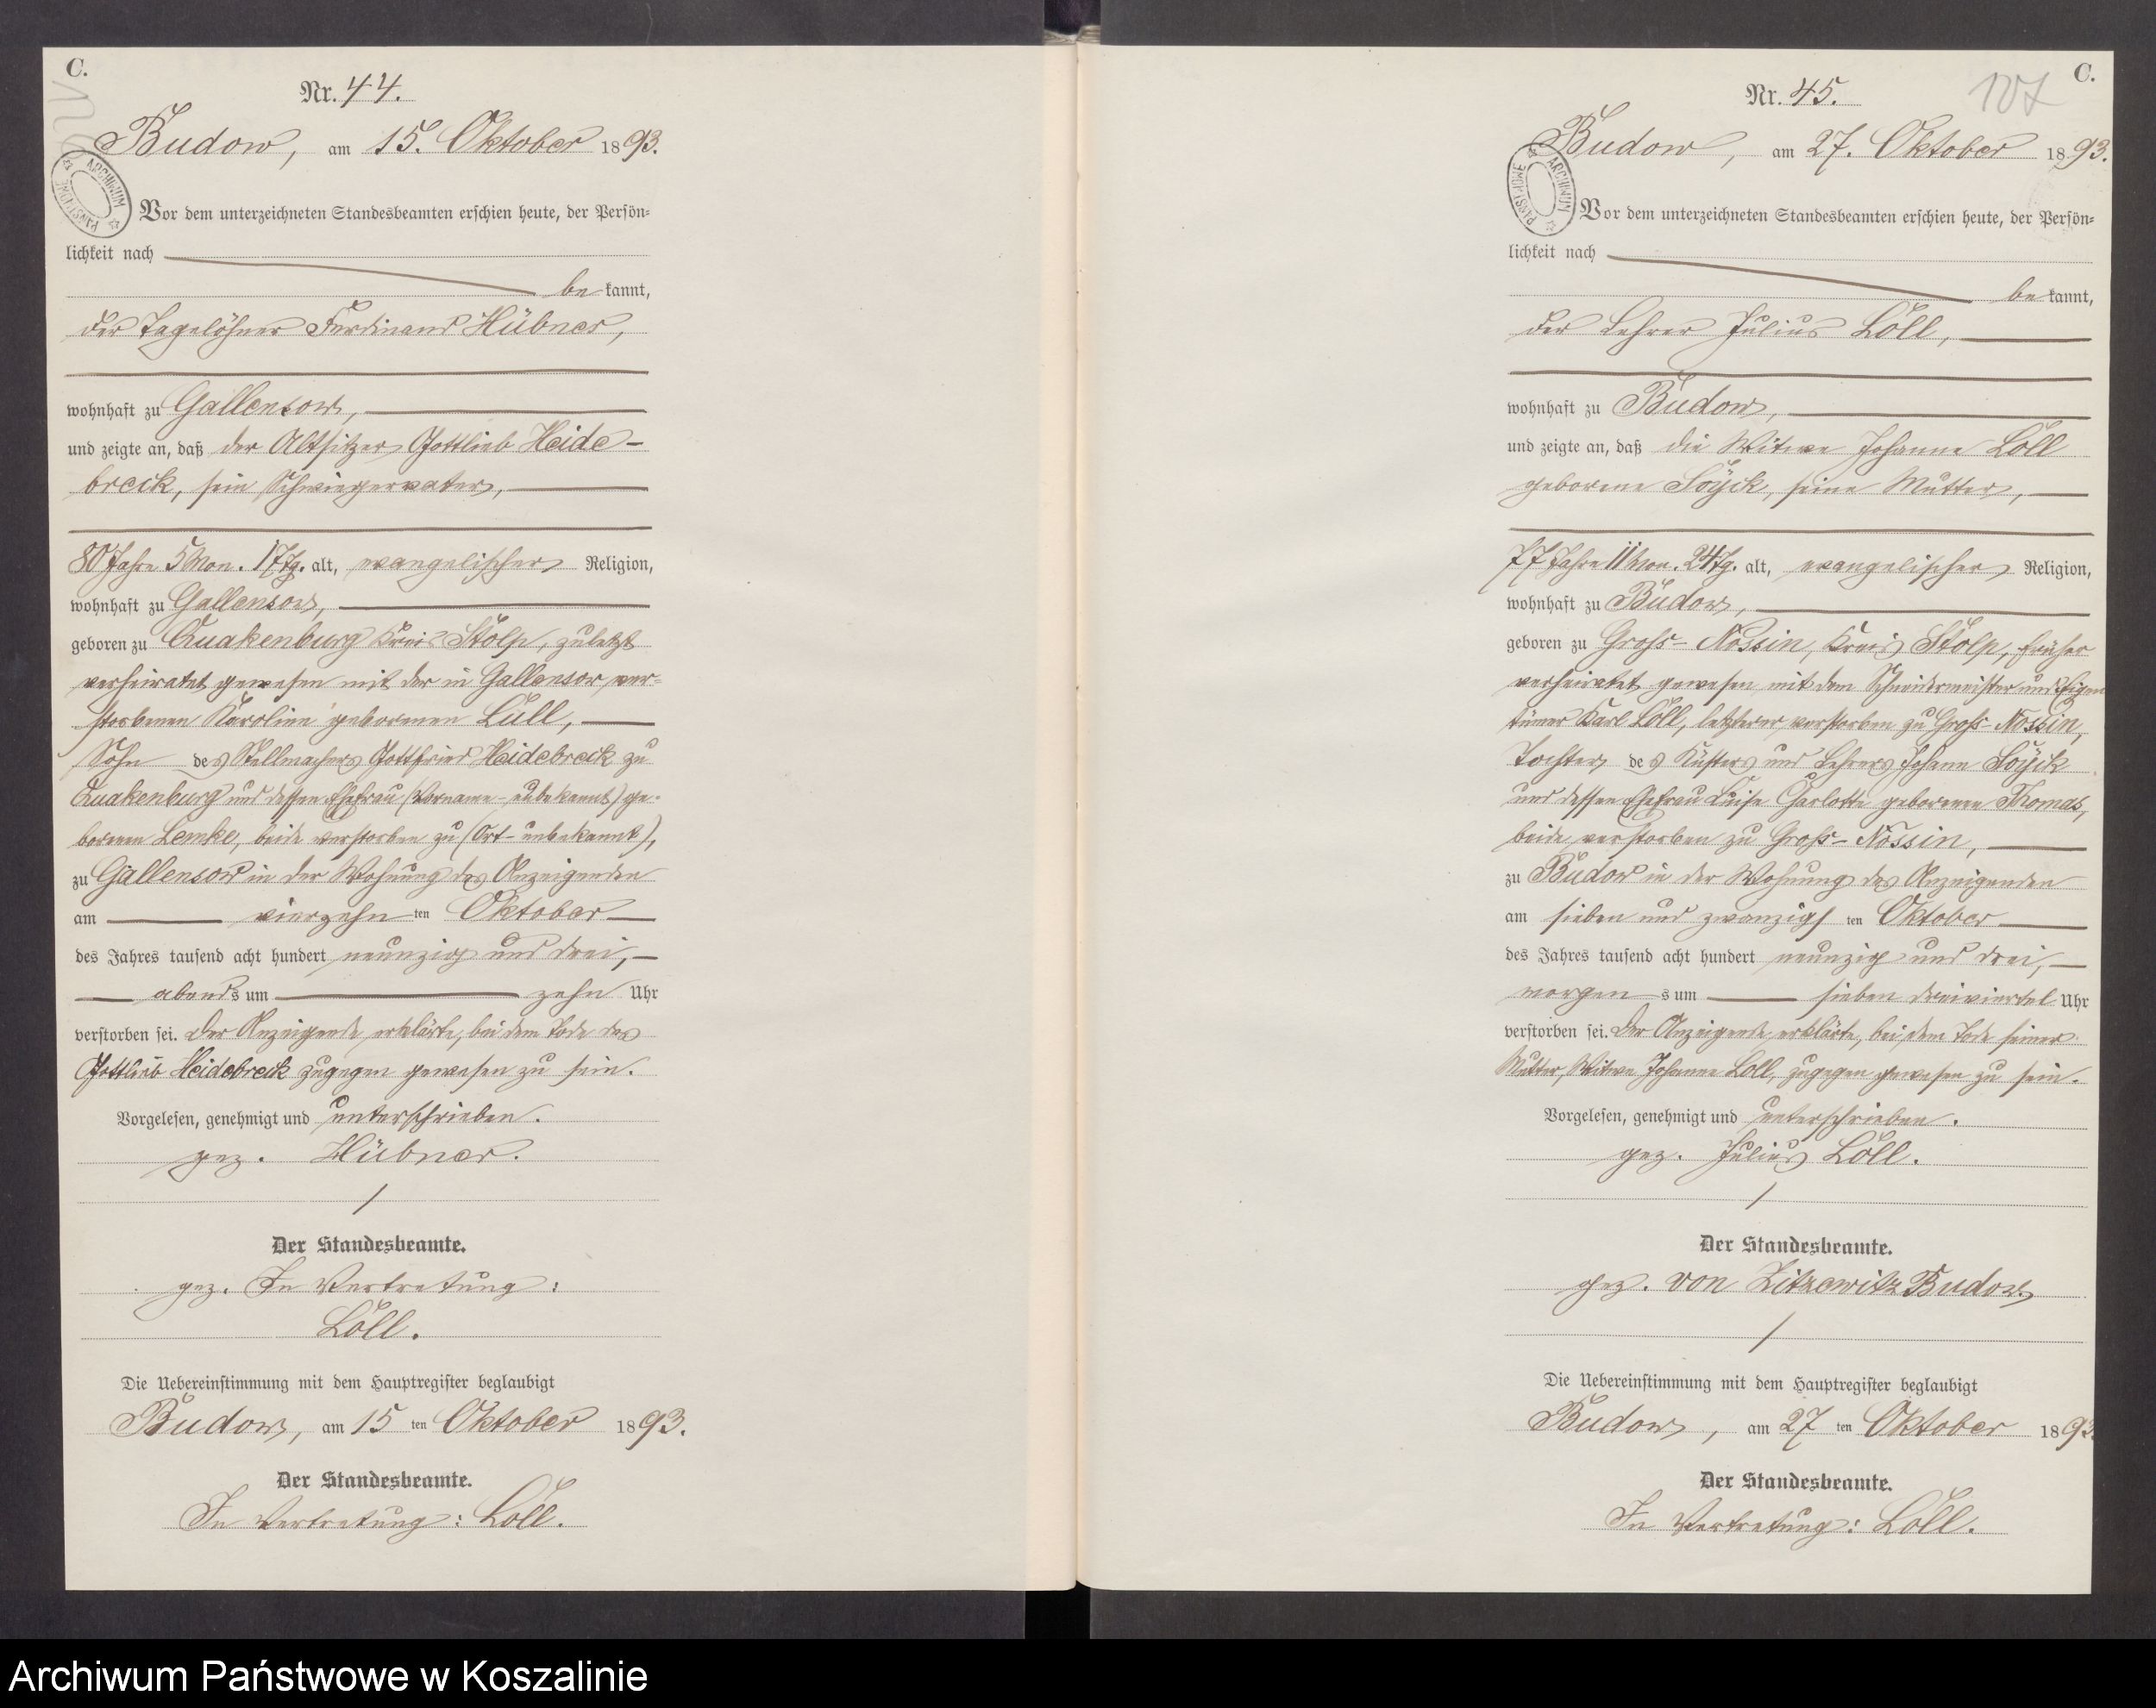 C.
Nr. 44.
Budow, am 15. Oktober 1893.
ARCHIWUM PAŃSTWOWE
Vor dem unterzeichneten Standesbeamten erschien heute, der Persön-
lichkeit nach
be kannt,
der Tagelöhner Ferdinand Hübner,
wohnhaft zu Gallensow,
und zeigte an, daß der Altsitzer Gottlieb Heide-
breck, sein Schwiegervater,
80 Jahre 5 Mon. 17 Tg. alt, evangelischer Religion,
wohnhaft zu Gallensow,
geboren zu Quakenburg Kreis Stolp, zuletzt
verheiratet gewesen mit der in Gallensow, ver-
storbenen Karoline geborenen Lüll,
Sohn des Stellmachers Gottfried Heidebreck zu
Quakenburg und dessen Ehefrau (Vorname - unbekannt) ge-
borenen Lemke, beide verstorben zu (Ort - unbekannt),
zu Gallensow in der Wohnung des Anzeigenden
am vierzehn ten Oktober
des Jahres tausend acht hundert neunzig und drei,
abends um zehn Uhr
verstorben sei. Der Anzeigende erklärte, bei dem Tode des
Gottlieb Heidebreck zugegen gewesen zu sein.
Vorgelesen, genehmigt und unterschrieben.
gez. Hübner.
Der Standesbeamte.
gez. In Vertretung:
Löll.
Die Uebereinstimmung mit dem Hauptregister beglaubigt
Budow, am 15 ten Oktober 1893.
Der Standesbeamte.
In Vertretung: Löll.
C.
107
Nr. 45.
Budow, am 27. Oktober 1893.
ARCHIWUM PAŃSTWOWE
Vor dem unterzeichneten Standesbeamten erschien heute, der Persön-
lichkeit nach
be kannt,
der Lehrer Julius Löll,
wohnhaft zu Budow,
und zeigte an, daß die Witwe Johanne Löll
geborene Söyck, seine Mutter,
77 Jahre 11 Mon. 24 Tg. alt, evangelischer Religion,
wohnhaft zu Budow,
geboren zu Gross-Nossin, Kreis Stolp, früher
verheiratet gewesen mit dem Schneidermeister und Eigen
tümer Karl Löll, letzterer verstorben zu Gross-Nossin,
Tochter des Küsters und Lehrers Johann Söyck
und dessen Ehefrau Luise Charlotte geborenen Thomas,
beide verstorben zu Gross-Nossin,
zu Budow in der Wohnung des Anzeigenden
am sieben und zwanzigs ten Oktober
des Jahres tausend acht hundert neunzig und drei,
morgen s um sieben dreiviertel Uhr
verstorben sei. Der Anzeigende erklärte, bei dem Tode seiner
Mutter, Witwe Johanne Löll, zugegen gewesen zu sein.
Vorgelesen, genehmigt und unterschrieben.
gez. Julius Löll.
Der Standesbeamte.
gez. von Zitzewitz Budow.
Die Uebereinstimmung mit dem Hauptregister beglaubigt
Budow, am 27 ten Oktober 1893.
Der Standesbeamte.
In Vertretung: Löll.
Archiwum Państwowe w Koszalinie